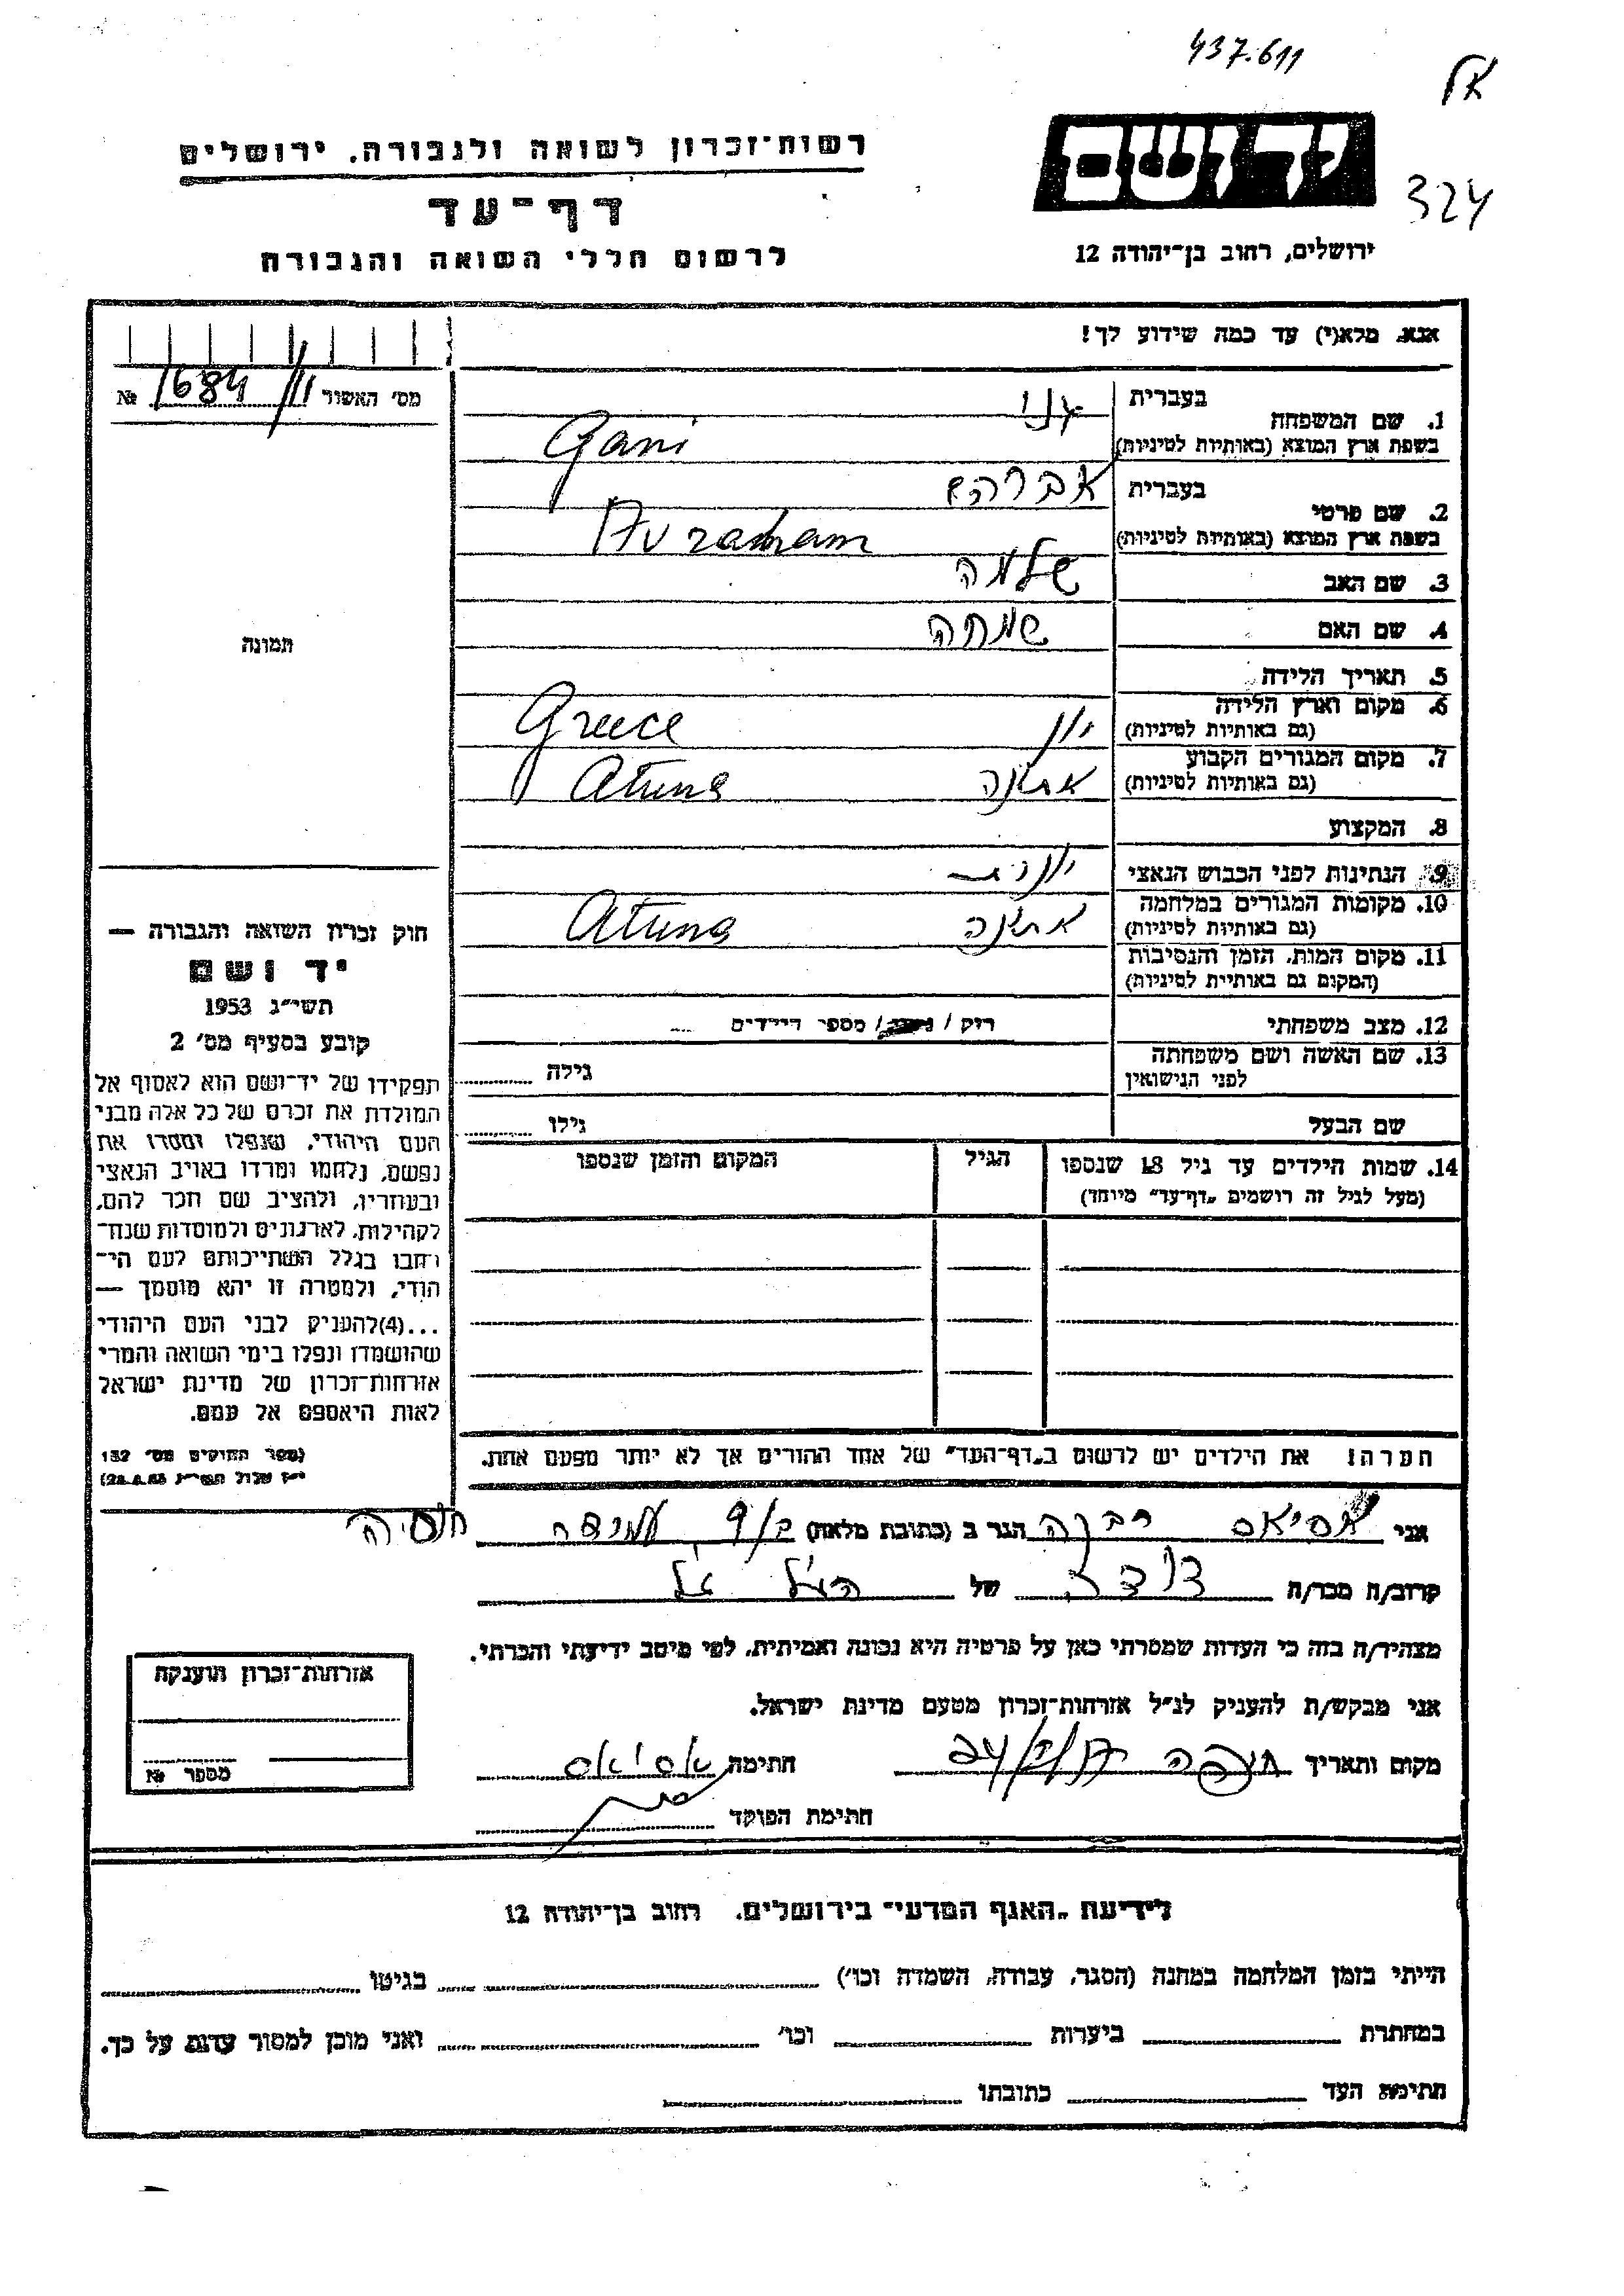 437.611
אל
324
יד ושם
ירושלים, רחוב בן־יהודה 12
רשות־זכרון לשואה ולגבורה, ירושלים
דף־עד
לרשום חללי השואה והגבורה
אנא, מלא(י) עד כמה שידוע לך!
מס' האשור № 1684/11
1. שם המשפחה בעברית גני
בשפת ארץ המוצא (באותיות לטיניות) Gani
2. שם פרטי בעברית אברהם
בשפת ארץ המוצא (באותיות לטיניות) Avraham
3. שם האב שלמה
4. שם האם שמחה
5. תאריך הלידה
6. מקום וארץ הלידה
(גם באותיות לטיניות) יון Greece
7. מקום המגורים הקבוע
(גם באותיות לטיניות) אתונה Atuna
8. המקצוע
9. הנתינות לפני הכבוש הנאצי יוונית
10. מקומות המגורים במלחמה
(גם באותיות לטיניות) אתונה Atuna
11. מקום המות, הזמן והנסיבות
(המקום גם באותיות לטיניות)
12. מצב משפחתי רוק / נשוי / מספר הילדים
13. שם האשה ושם משפחתה
לפני הנישואין גילה
שם הבעל גילו
14. שמות הילדים עד גיל 18 שנספו
(מעל לגיל זה רושמים „דף־עד" מיוחד)
הגיל
המקום והזמן שנספו
תמונה
חוק זכרון השואה והגבורה —
יד ושם
תשי"ג 1953
קובע בסעיף מס' 2
תפקידו של יד־ושם הוא לאסוף אל
המולדת את זכרם של כל אלה מבני
העם היהודי, שנפלו ומסרו את
נפשם, נלחמו ומרדו באויב הנאצי
ובעוזריו, ולהציב שם וזכר להם,
לקהילות, לארגונים ולמוסדות שנח־
רבו בגלל השתייכותם לעם הי־
הודי, ולמטרה זו יהא מוסמך —
...(4) להעניק לבני העם היהודי
שהושמדו ונפלו בימי השואה והמרי
אזרחות־זכרון של מדינת ישראל
לאות היאספם אל עמם.
(ספר החוקים מס' 132
י"ז אלול תשי"ג 28.8.53)
הערה! את הילדים יש לרשום ב„דף־העד" של אחד ההורים אך לא יותר מפעם אחת.
אני אסיאס רבקה הגר ב (כתובת מלאה) 9/ב עמידר חוסיה
קרוב/ה מכר/ה דודה של הנ"ל
מצהיר/ה בזה כי העדות שמסרתי כאן על פרטיה היא נכונה ואמיתית, לפי מיטב ידיעתי והכרתי.
אני מבקש/ת להעניק לנ"ל אזרחות־זכרון מטעם מדינת ישראל.
מקום ותאריך חיפה חתימה אסיאס
חתימת הפוקד
אזרחות־זכרון הוענקה
מספר №
לידיעת „האגף המדעי" בירושלים, רחוב בן־יהודה 12
הייתי בזמן המלחמה במחנה (הסגר, עבודה, השמדה וכו') בגיטו
במחתרת ביערות וכו' ואני מוכן למסור עדות על כך.
חתימת העד כתובתו